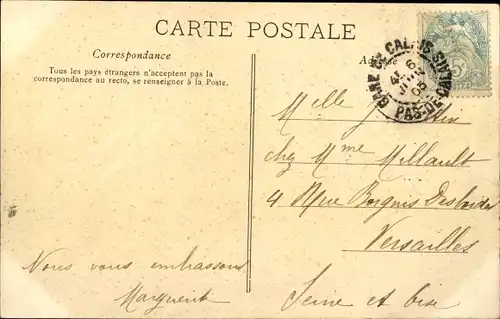 CARTE POSTALE
Correspondance
Tous les pays étrangers n'acceptent pas la
correspondance au recto, se renseigner à la Poste.
GARE DE CALAIS
PAS-DE-CALAIS
05
5
Melle
chez Mme Millault
4 Rue Borgnis Desbordes
Versailles
Seine et Oise
Nous vous embrassons
Marguerite